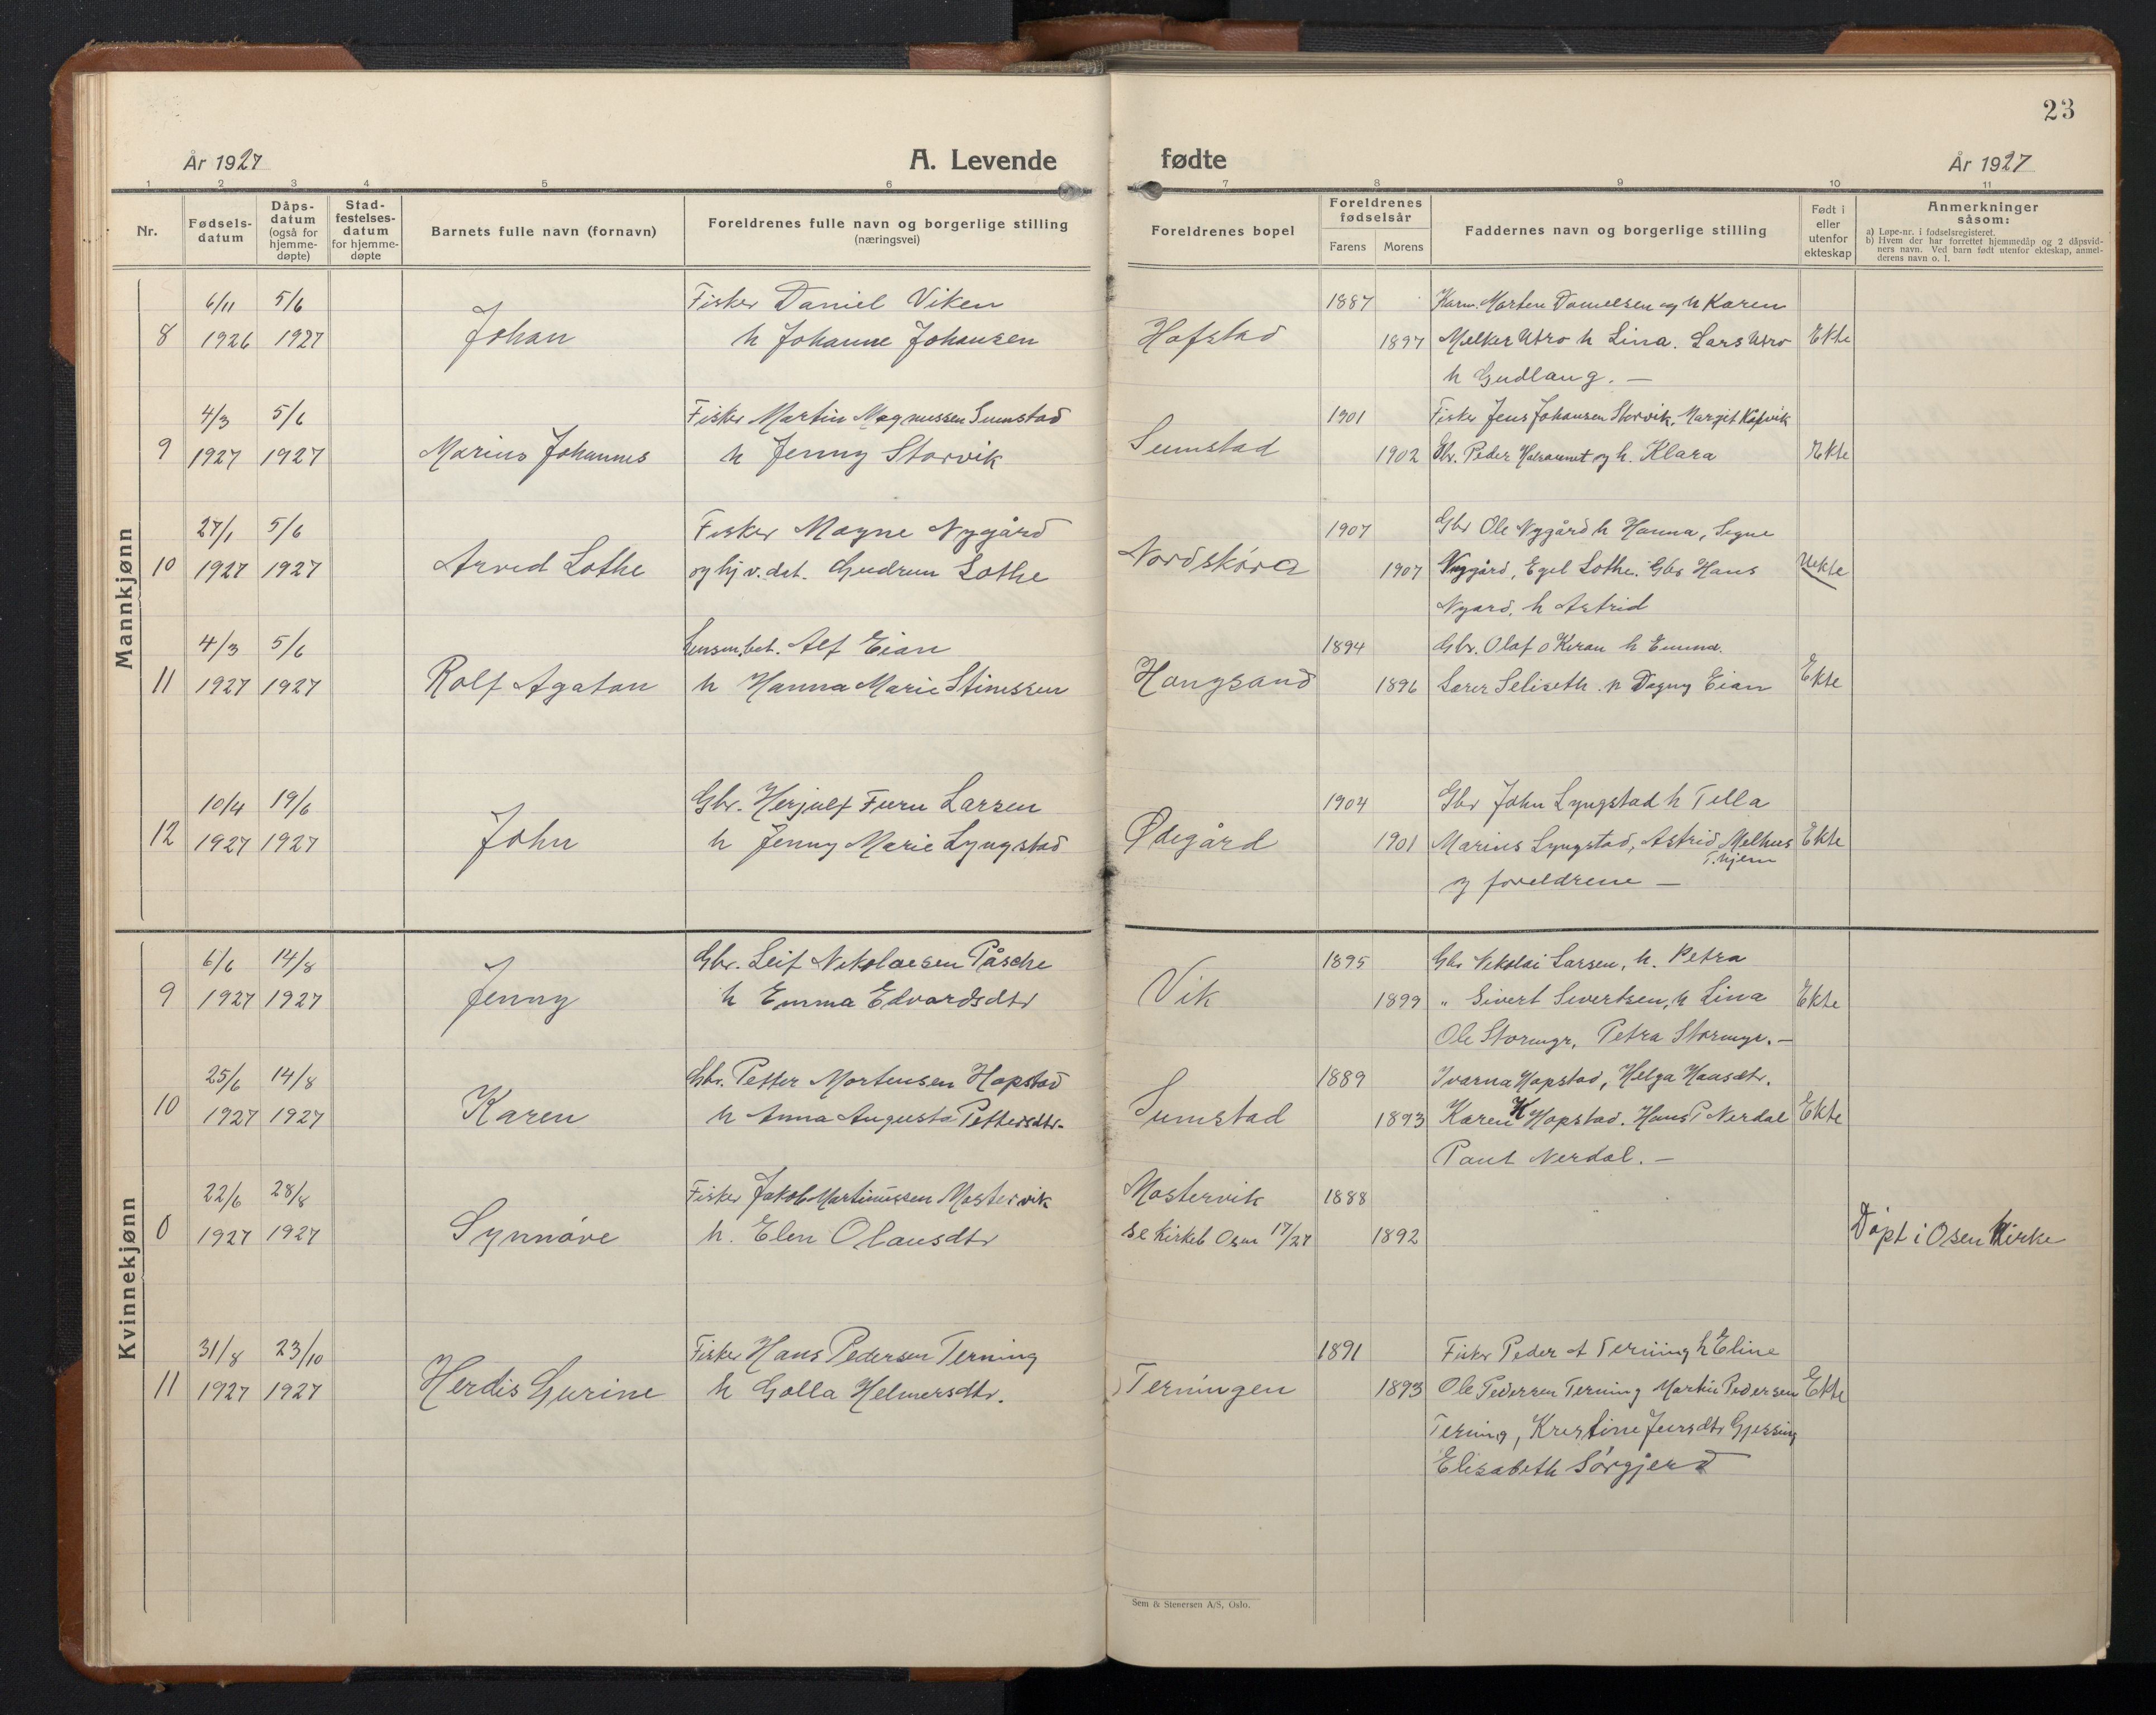 23
År 1927
A. Levende
fødte
År 1927
1 2 3 4 5 6 7 8 9 10 11
Nr.
Fødsels-
datum
Dåps-
datum
(også for
hjemme-
døpte)
Stad-
festelses-
datum
for hjemme-
døpte
Barnets fulle navn (fornavn)
Foreldrenes fulle navn og borgerlige stilling
(næringsvei)
Foreldrenes bopel
Foreldrenes
fødselsår
Farens Morens
Faddernes navn og borgerlige stilling
Født i
eller
utenfor
ekteskap
Anmerkninger
såsom:
a) Løpe-nr. i fødselsregisteret.
b) Hvem der har forrettet hjemmedåp og 2 dåpsvid-
ners navn. Ved barn født utenfor ekteskap, anmel-
derens navn o. l.
Mannkjønn
6/11 5/6 Fisker Daniel Viken 1887 Morten Danielsen og h Karen
8 1926 1927 Johan h Johanne Johansen Hofstad 1897 Melker Utro h Lina. Lars Utro Ekte
h Gudlaug. —
4/3 5/6 Fisker Martin Magnussen Sumstad 1901 Fisker Jens Johansen Storvik, Margit
9 1927 1927 Marius Johannes h Jenny Storvik Sumstad 1902 Gbr. Peder og h. Klara Ekte
27/1 5/6 Fisker Magne Nygård 1907 Gbr Ole Nygård h Hanna, Signe
10 1927 1927 Arvid Lothe og hj v. dat. Gudrun Lothe Nordsköra 1907 Nygård, Egel Lothe. Gbr Hans Uekte
Nyard, h Astrid
4/3 5/6 Alf Eian 1894 Gbr. Olaf h Emma.
11 1927 1927 Rolf Agaton h Hanna Marie Hongsand 1896 Lærer Seliseth. h Dagny Eian Ekte
10/4 19/6 Gbr. Herjulf Furu Larsen 1904 Gbr John Lyngstad h Tella
12 1927 1927 John h Jenny Marie Lyngstad Ødegård 1901 Marius Lyngstad, Astrid Melhus Ekte
T.hjem
og foreldrene —
Kvinnekjønn
6/6 14/8 Gbr. Leif Nikolaesen Påsche 1895 Gbr Nikolai Larsen, h. Petra
9 1927 1927 Jenny h Emma Edvardsdtr Vik 1899 " Sivert Sivertsen, h Lina Ekte
Ole Stormyr, Petra Stormyr. —
25/6 14/8 Gbr. Petter Mortensen Hopstad 1889 Ivarna Hopstad, Helga Hansdtr.
10 1927 1927 Karen h Anna Augusta Pettersdtr. Sumstad 1893 Karen K Hopstad. Hans P Nerdal Ekte
Paul Nerdal. —
22/6 28/8 Fisker Jakob Martinussen Mostervik Mostervik 1888
0 1927 1927 Synnøve h. Elen Olausdtr se kirkeb Osen 17/27 1892 Döpt i Osen Kirke
31/8 23/10 Fisker Hans Pedersen Terning 1891 Fisker Peder A Terning h Eline
11 1927 1927 Herdis Gurine h Golla Helmersdtr. Terningen 1893 Ole Pedersen Terning Martin Pedersen Ekte
Terning, Kristine Jensdtr Gjessing
Elisabeth Sörgjerd
Sem & Stenersen A/S, Oslo.